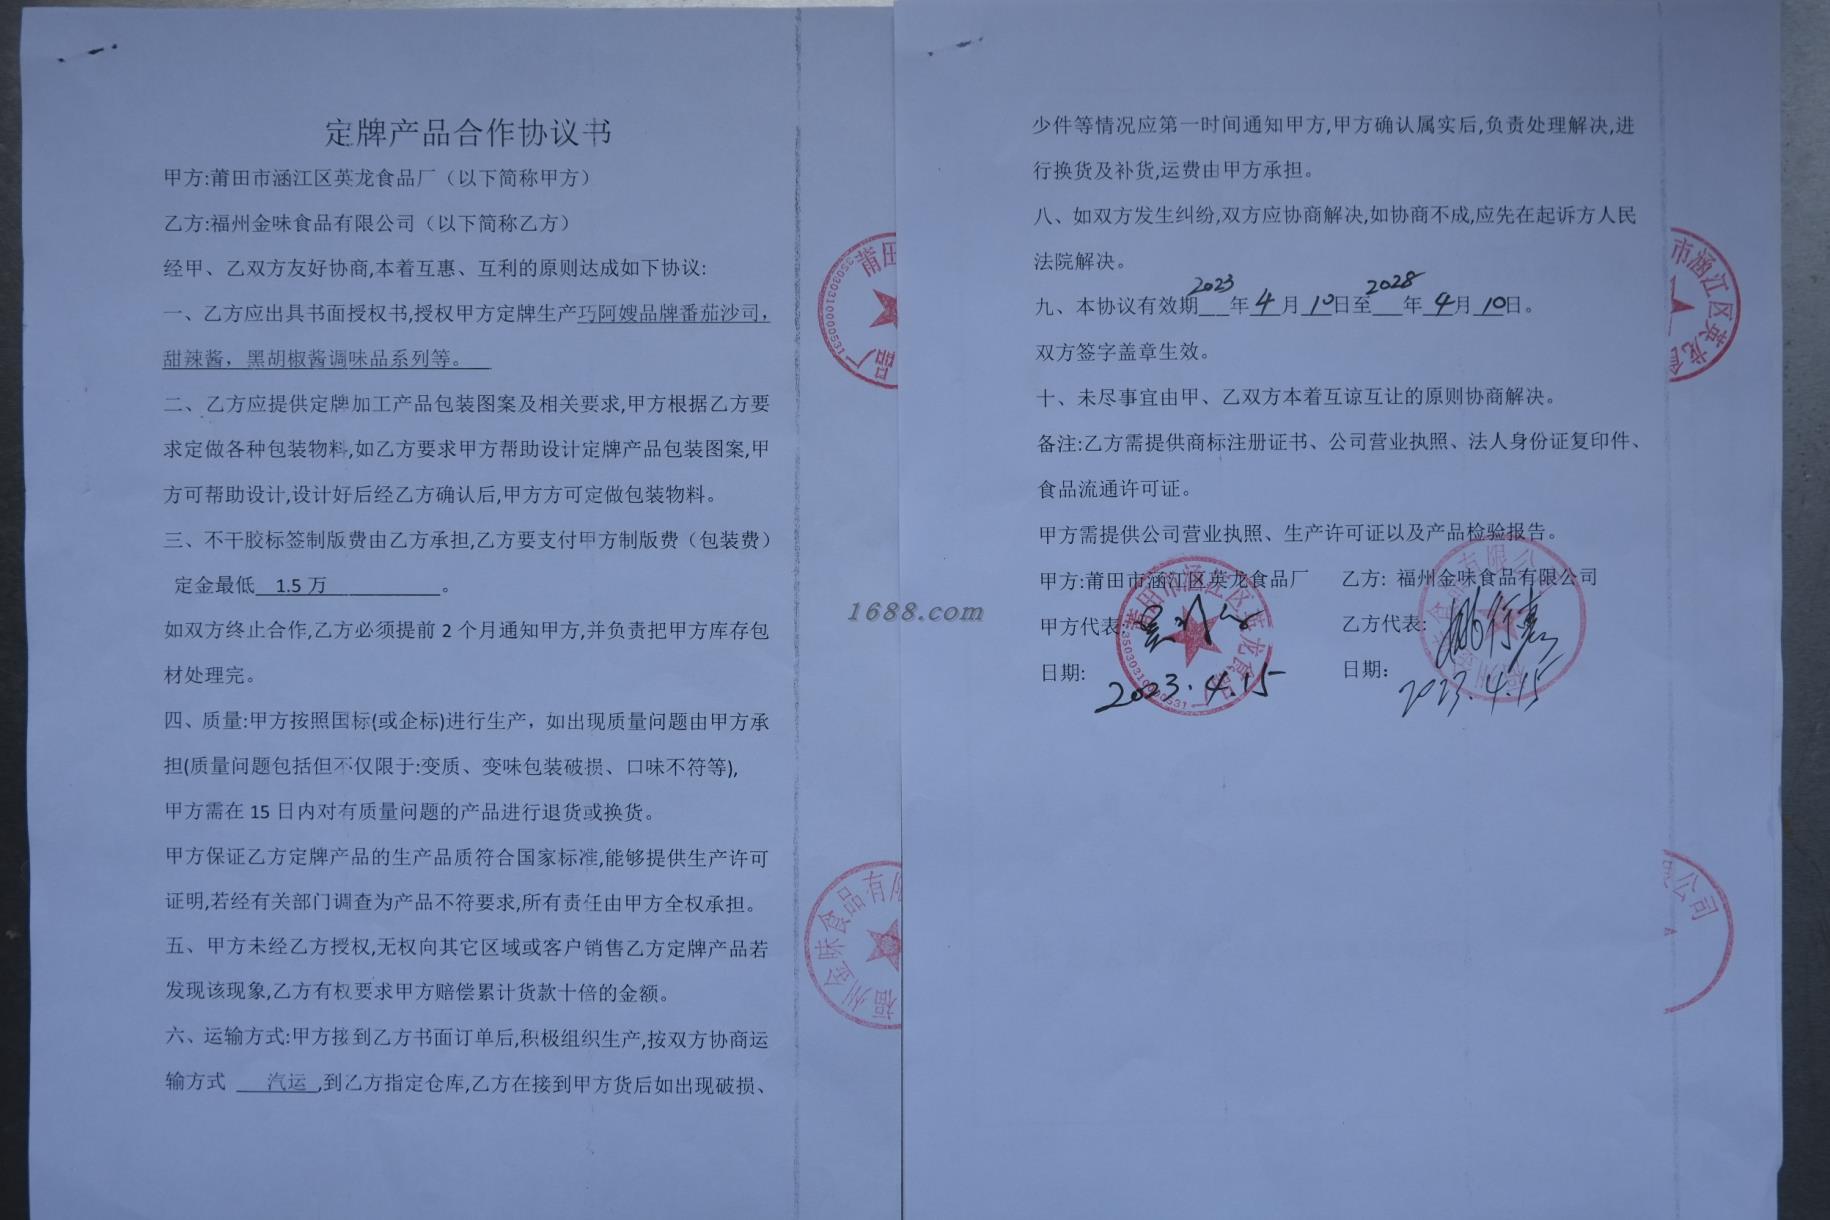 定牌产品合作协议书
甲方:莆田市涵江区英龙食品厂（以下简称甲方）
乙方:福州金味食品有限公司（以下简称乙方）
经甲、乙双方友好协商,本着互惠、互利的原则达成如下协议:
一、乙方应出具书面授权书,授权甲方定牌生产巧阿嫂品牌番茄沙司，
甜辣酱，黑胡椒酱调味品系列等。
二、乙方应提供定牌加工产品包装图案及相关要求,甲方根据乙方要
求定做各种包装物料,如乙方要求甲方帮助设计定牌产品包装图案,甲
方可帮助设计,设计好后经乙方确认后,甲方方可定做包装物料。
三、不干胶标签制版费由乙方承担,乙方要支付甲方制版费（包装费）
定金最低 1.5 万 。
如双方终止合作,乙方必须提前 2 个月通知甲方,并负责把甲方库存包
材处理完。
四、质量:甲方按照国标(或企标)进行生产，如出现质量问题由甲方承
担(质量问题包括但不仅限于:变质、变味包装破损、口味不符等),
甲方需在 15 日内对有质量问题的产品进行退货或换货。
甲方保证乙方定牌产品的生产品质符合国家标准,能够提供生产许可
证明,若经有关部门调查为产品不符要求,所有责任由甲方全权承担。
五、甲方未经乙方授权,无权向其它区域或客户销售乙方定牌产品若
发现该现象,乙方有权要求甲方赔偿累计货款十倍的金额。
六、运输方式:甲方接到乙方书面订单后,积极组织生产,按双方协商运
输方式 汽运 ,到乙方指定仓库,乙方在接到甲方货后如出现破损、
少件等情况应第一时间通知甲方,甲方确认属实后,负责处理解决,进
行换货及补货,运费由甲方承担。
八、如双方发生纠纷,双方应协商解决,如协商不成,应先在起诉方人民
法院解决。
九、本协议有效期2023年4月10日至2028年4月10日。
双方签字盖章生效。
十、未尽事宜由甲、乙双方本着互谅互让的原则协商解决。
备注:乙方需提供商标注册证书、公司营业执照、法人身份证复印件、
食品流通许可证。
甲方需提供公司营业执照、生产许可证以及产品检验报告。
甲方:莆田市涵江区英龙食品厂 乙方: 福州金味食品有限公司
甲方代表: 乙方代表:
日期: 2023.4.15 日期: 2023.4.15
莆田市涵江区英龙食品厂
35030310000531
福州金味食品有限公司
1688.com